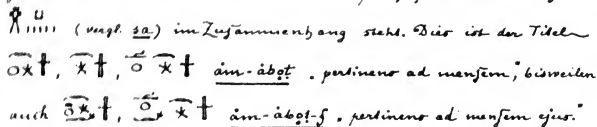 (vergl. sa) im Zusammenhang steht. Dies ist der Titel
ȧm-ȧbot „pertinens ad mensem," bisweilen
auch ȧm-ȧbot-f „pertinens ad mensem ejus."